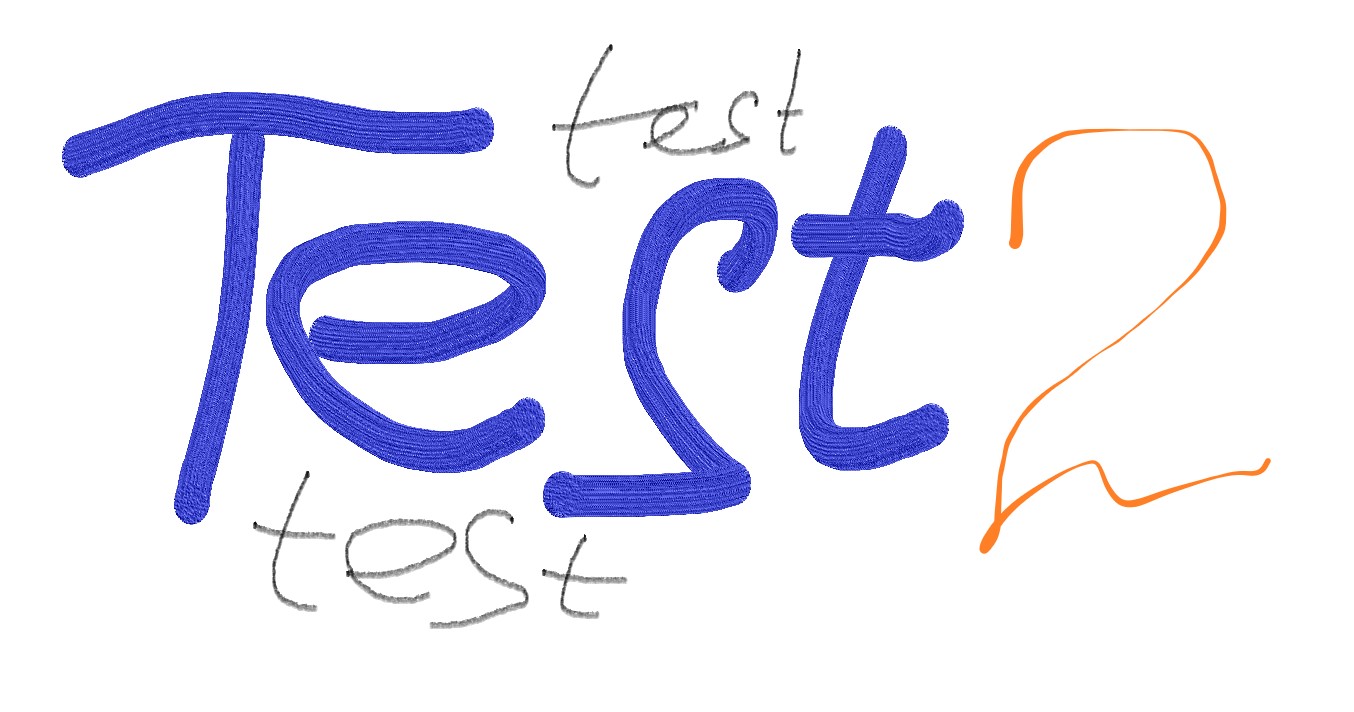 test
Test 2
test